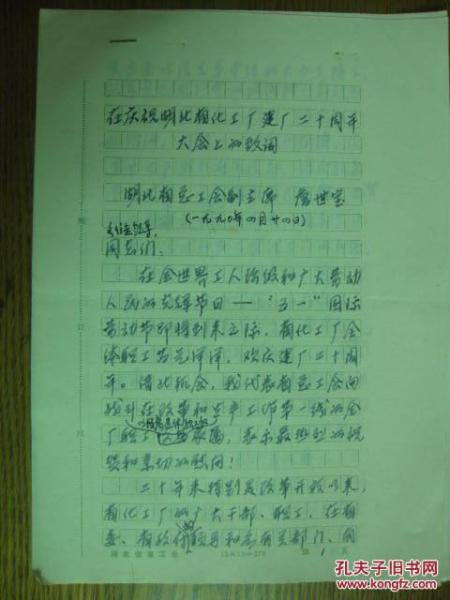 在庆祝湖北省化工厂建厂二十周年
大会上的致词
湖北省总工会副主席 詹世宝
(一九九0年四月廿四日)
各位领导、
同志们:
在全世界工人阶级和广大劳动
人民的光辉节日——“五一”国际
劳动节即将到来之际,省化工厂全
体职工喜气洋洋,欢庆建厂二十周
年。借此机会,我代表省总工会向
战斗在改革和生产工作第一线的全
厂职工 家属,表示最热烈的祝
贺和亲切的慰问!
二十年来特别是改革开放以来,
省化工厂的广大干部、职工,在省
委、省政府领导和有关部门、
湖北省总工会
第1页
孔夫子旧书网